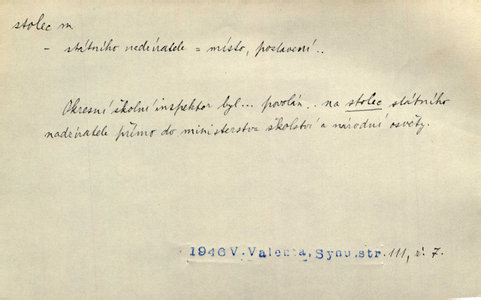 stolec m
- státního nadzíratele = místo, postavení..
Okresní školní inspektor byl... povolán.. na stolec státního
nadzíratele přímo do ministerstva školství a národní osvěty.
1946 V. Valenta, Synu.str. 111, ř. 7.